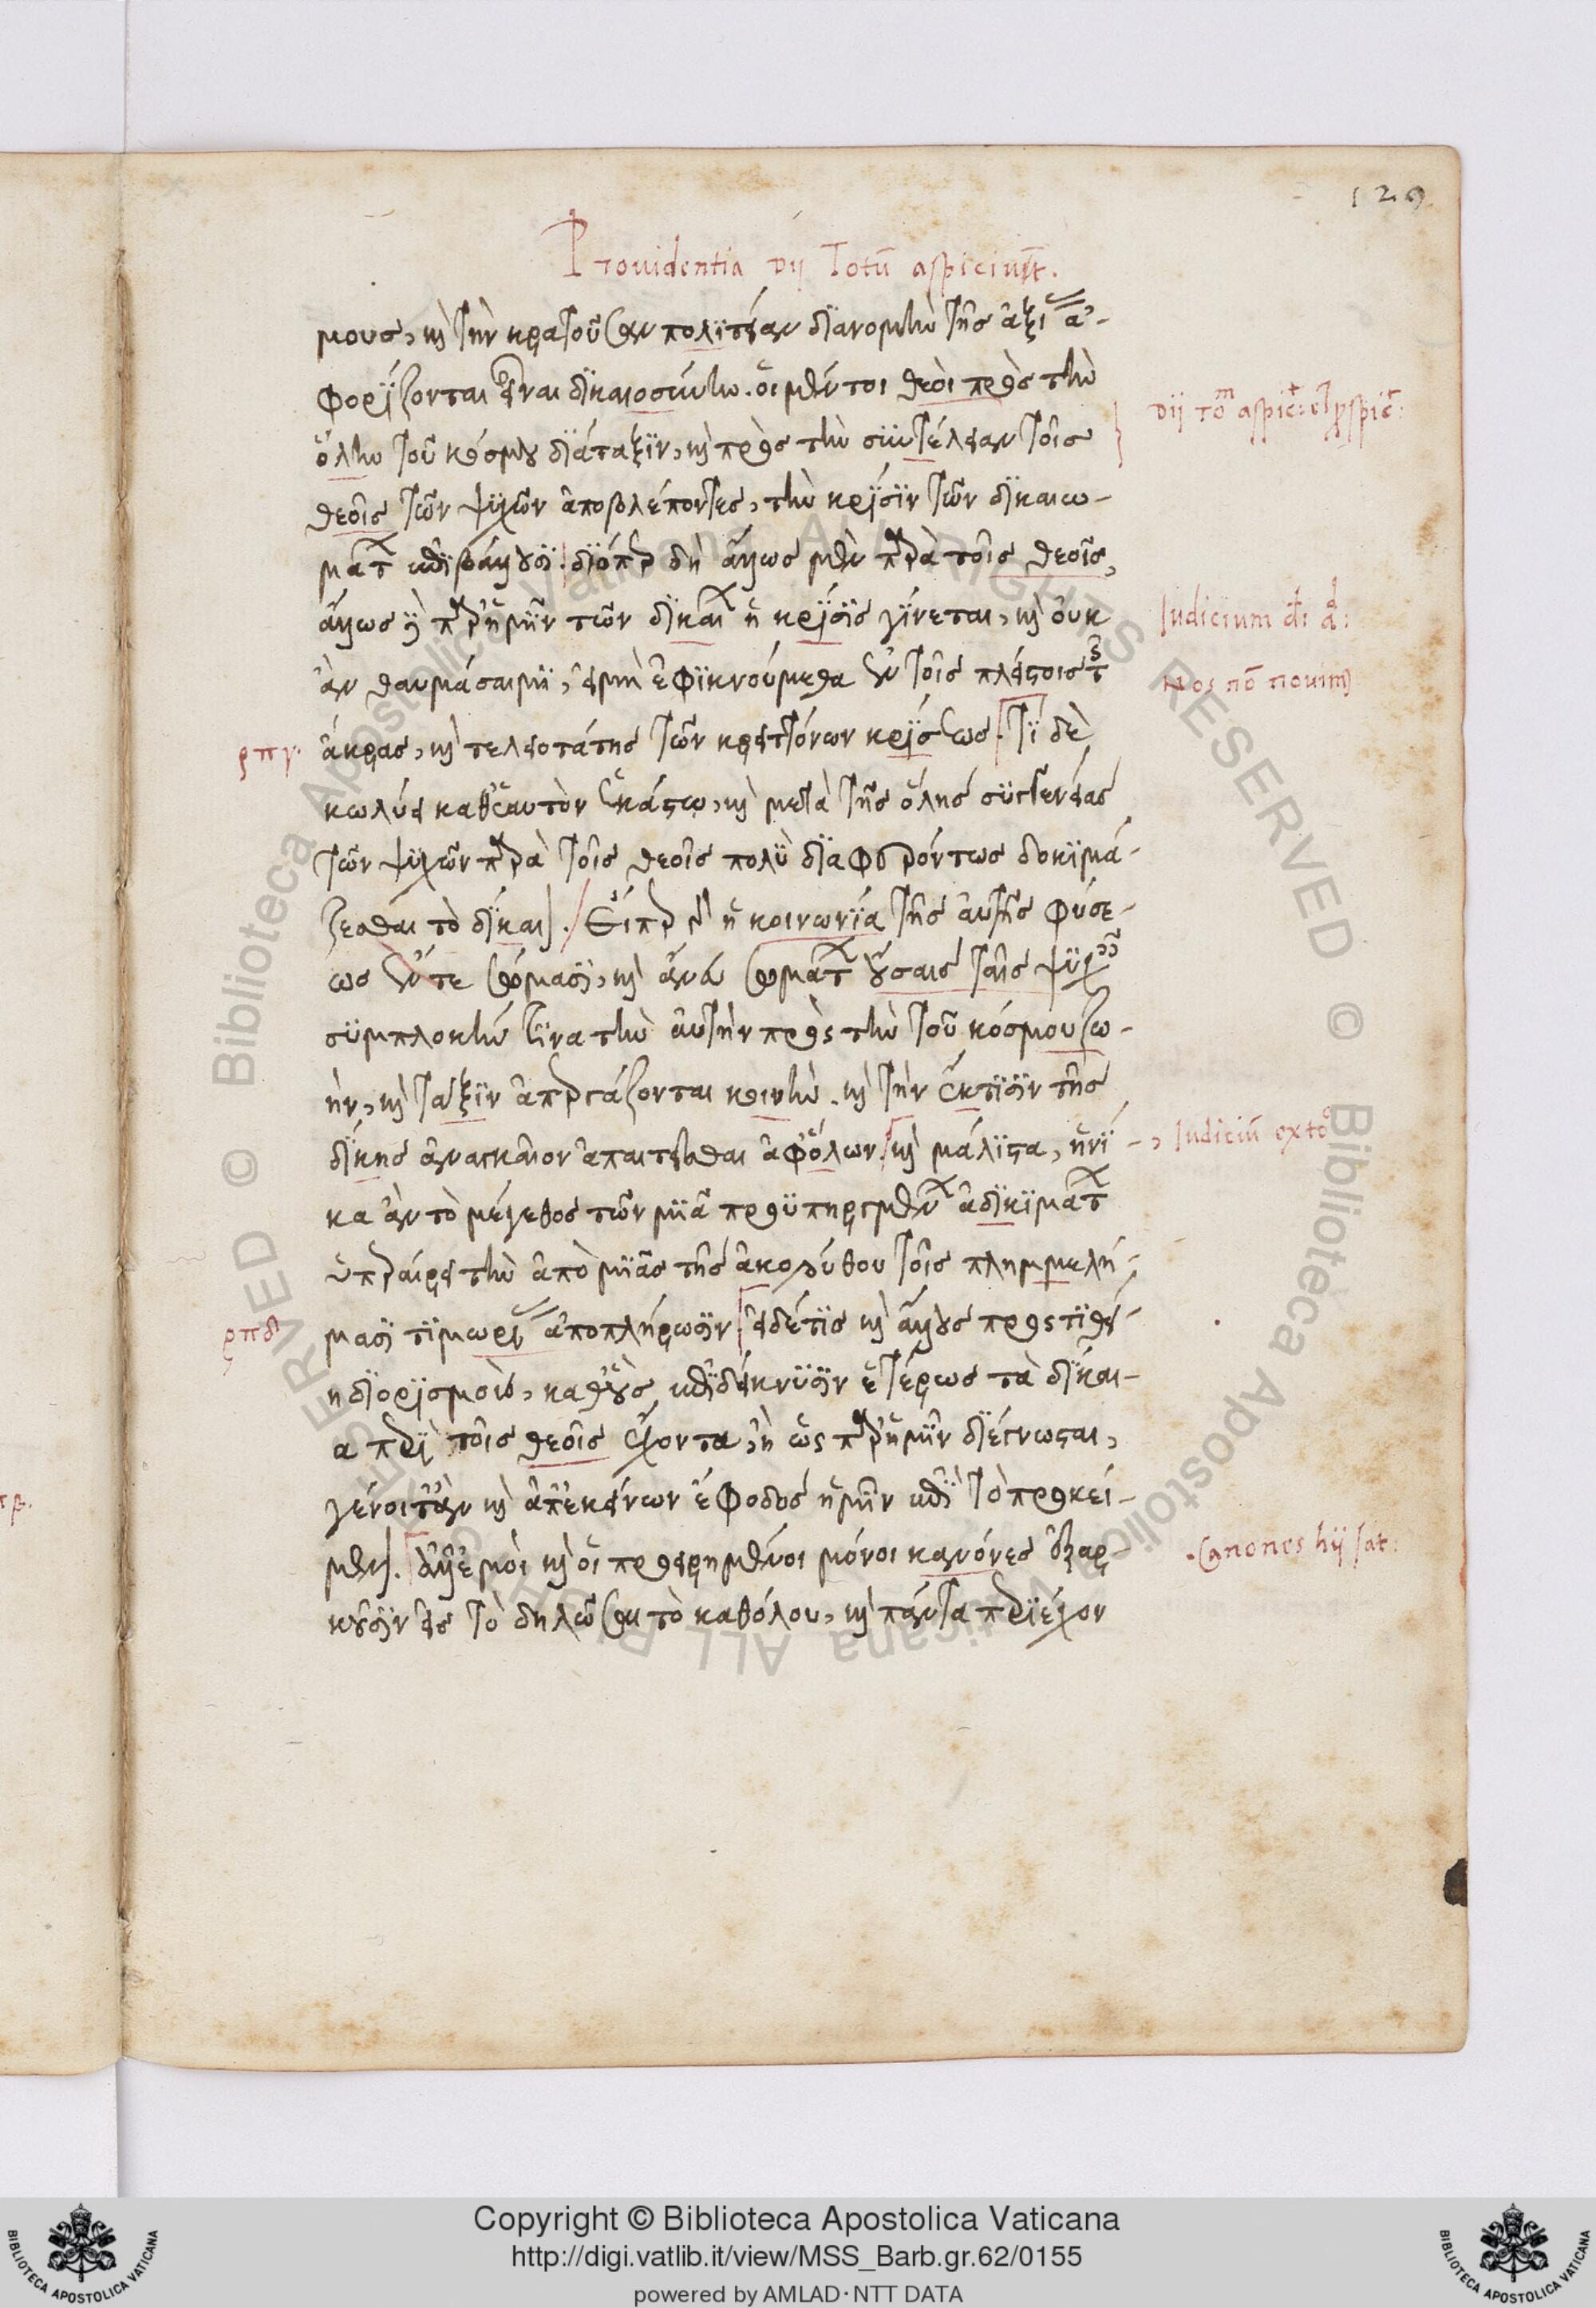 129
Providentia dii Totū aspiciunt.
μους, καὶ τὴν κρατοῦσαν πολιτείαν διανομὴν τῆς ἀξίας ἀ-
φορίζονται εἶναι δικαιοσύνην. οἱ μέντοι θεοὶ πρὸς τὴν
ὅλην τοῦ κόσμου διάταξιν, καὶ πρὸς τὴν συντέλειαν τοῖς
θεοῖς τῶν ψυχῶν ἀποβλέποντες, τὴν κρίσιν τῶν δικαιω-
μάτων ἐπιβάλλουσι. διόπερ δὴ ἄλλως μὲν παρὰ τοῖς θεοῖς,
ἄλλως δὲ παρ' ἡμῖν τῶν δικαίων ἡ κρίσις γίνεται, καὶ οὐκ
ἂν θαυμάσαιμι, εἰ μὴ ἐφικνούμεθα ἐν τοῖς πλείστοις τῆς
ἄκρας, καὶ τελεοτάτης τῶν κρειττόνων κρίσεως. τί δὲ
κωλύει καθ' ἑαυτὸν ἑκάστῳ, καὶ μετὰ τῆς ὅλης συγγενείας
τῶν ψυχῶν παρὰ τοῖς θεοῖς πολὺ διαφερόντως δοκιμά-
ζεσθαι τὸ δίκαιον. Εἴπερ γὰρ ἡ κοινωνία τῆς αὐτῆς φύσε-
ως ἔν τε σώμασι, καὶ ἄνευ σωμάτων οὔσαις ταῖς ψυχαῖς
συμπλοκήν τινα τὴν αὐτὴν πρὸς τὴν τοῦ κόσμου ζω-
ὴν, καὶ τάξιν ἀπεργάζονται κοινὴν. καὶ τὴν ἔκτισιν τῆς
δίκης ἀναγκαῖον ἀπαιτεῖσθαι ἀφ' ὅλων. καὶ μάλιστα, ἡνί-
κα ἂν τὸ μέγεθος τῶν μιᾷ προϋπηργμένων ἀδικημάτων
ὑπεραίρει τὴν ἀπὸ μιᾶς τῆς ἀκολούθου τοῖς πλημμελή-
μασι τιμωρίας ἀποπλήρωσιν. εἰ δέ τις καὶ ἄλλους προστιθεί-
η διορισμοὺς, καθ' οὓς ἐπιδείκνυσιν ἑτέρως τὰ δίκαι-
α περὶ τοῖς θεοῖς ἔχοντα, ἢ ὡς παρ' ἡμῖν διέγνωσται,
γένοιτ' ἂν καὶ ἀπ' ἐκείνων ἔφοδος ἡμῖν ἐπὶ τὸ προκεί-
μενον. ἀλλ' ἐμοὶ καὶ οἱ προειρημένοι μόνοι κανόνες ἐξαρ-
κοῦσιν εἰς τὸ δηλῶσαι τὸ καθόλου, καὶ πάντα περιέχον
ρπγ.
ρπδ
Judicium
Nos nō novim9
Judiciū ex to
Canones hij sat:
Copyright © Biblioteca Apostolica Vaticana
http://digi.vatlib.it/view/MSS_Barb.gr.62/0155
powered by AMLAD·NTT DATA